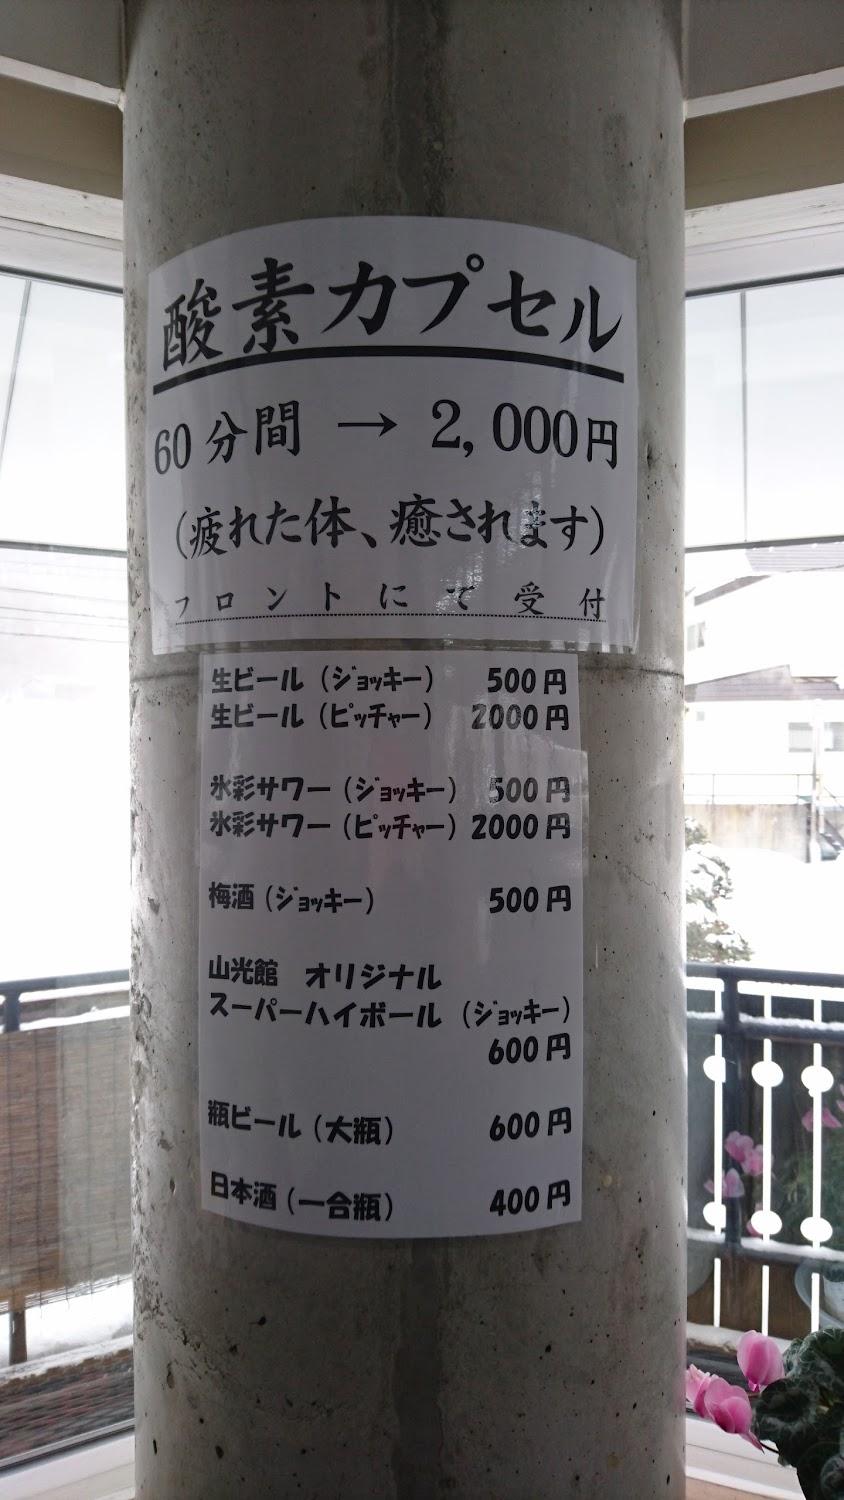 酸素カプセル
60分間 → 2,000円
(疲れた体、癒されます)
フロントにて受付
生ビール(ジョッキー) 500円
生ビール(ピッチャー) 2000円
氷彩サワー(ジョッキー) 500円
氷彩サワー(ピッチャー) 2000円
梅酒(ジョッキー) 500円
山光館 オリジナル
スーパーハイボール (ジョッキー)
600円
瓶ビール(大瓶) 600円
日本酒(一合瓶) 400円